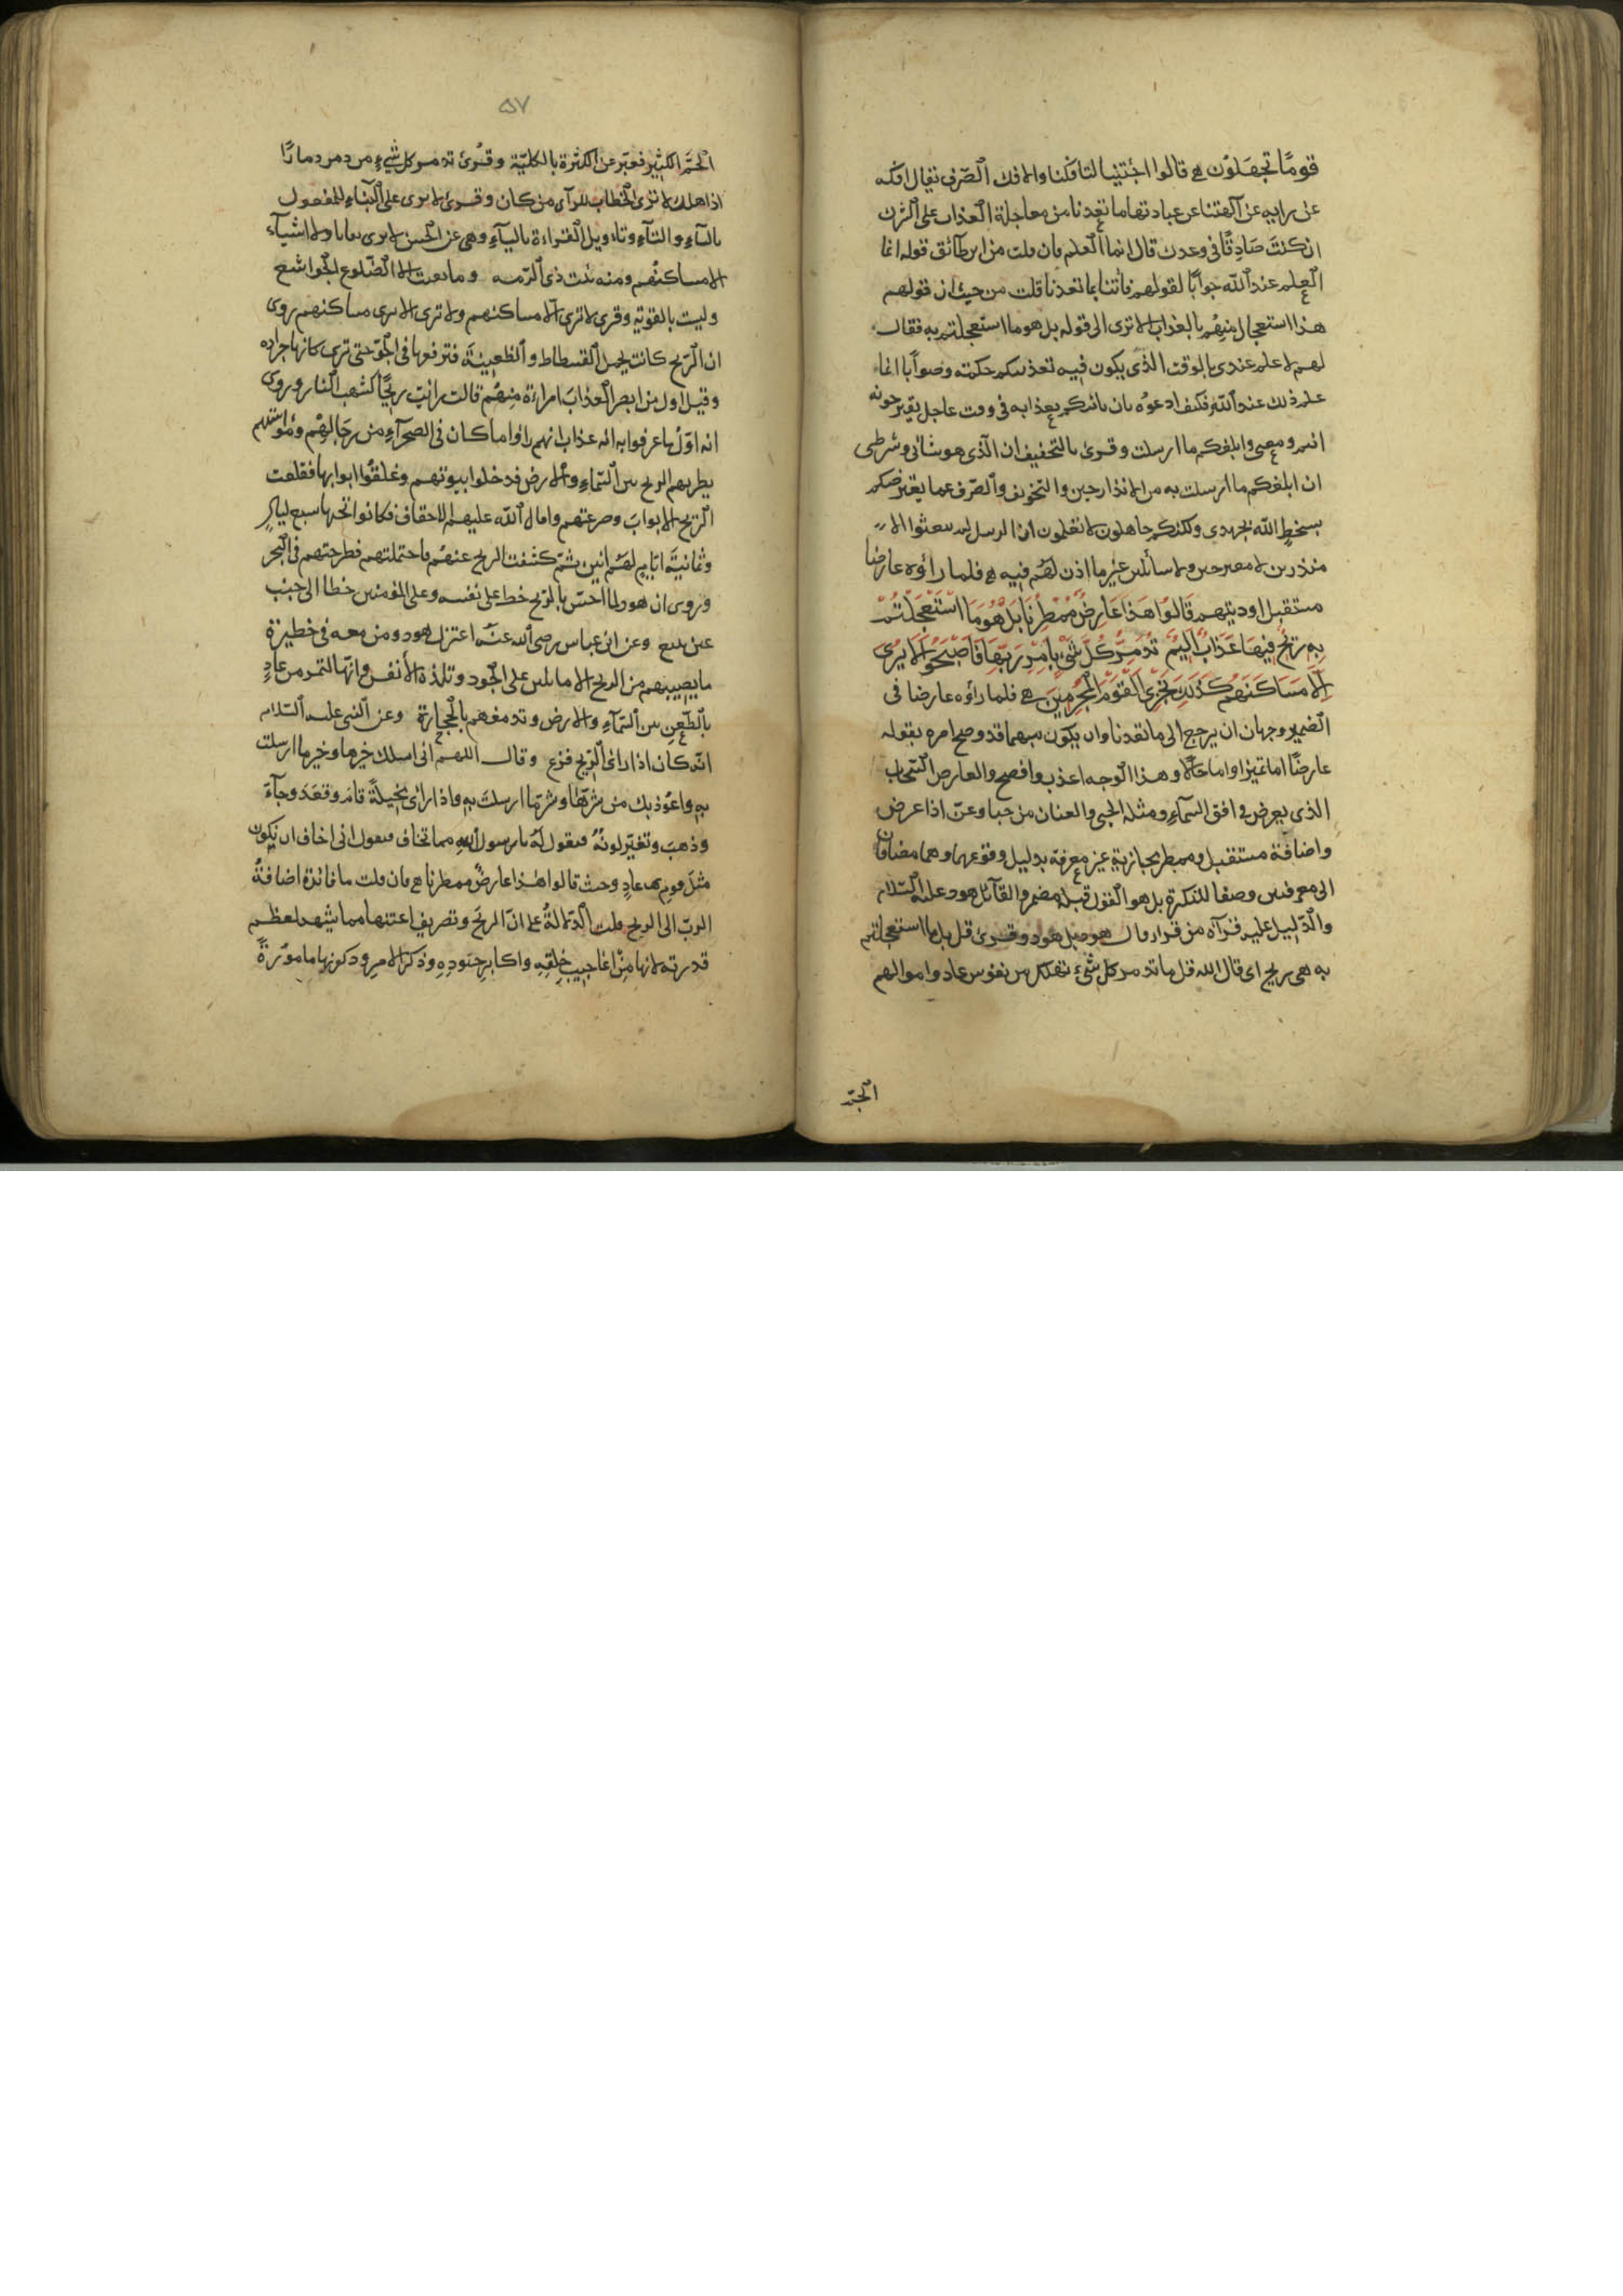 قومًا تجهَلوُن ۞ قالوا اجئتنا لتافكنا والافك الصّرف يقال افكه
عن رايه عن آلهتنا عن عبادتها بما تعدنا من معاجلة العذاب على الشرك
ان كنتَ صَادِقًا في وعدك قال انما العلم فان قلت من اين طابق قوله انما
العِلم عند الله جوابًا لقولهم فأتنا بما تعدنا قلت من حيث ان قولهم
هذا استعجال منِهُم بالعذاب الا ترى الى قوله بل هو ما استعجلتم به فقال
لهم لا علم عندي بالوقت الذي يكون فيه تعذيبكم حكمته وصوابًا انما
علم ذلك عند الله فكيف ادعوُه بان ياتيكم بعذابه في وقت عاجل تقترحونه
انتم ومعنى وابلغكم ما ارسلت وقرئ بالتخفيف ان الذي هو شاني وشرطى
ان ابلغكم ما ارسلت به من الانذار والتخويف والصّرف عما يعرّضكم
بسخط الله بجهدي ولكنكم جاهلون لا تعلمون ان الرسل لم يبعثوا الا
منذرين لا مقترحين ولا سائلين غير ما اذن لهُم فيه ۞ فلما رأوه عارضا
مستقبل اوديتهم قَالوُا هَذا عَارِضٌ مُمْطِرُنَا بَلْ هُوَ مَا اسْتَعْجَلْتُمْ
بِهِ رِيحٌ فِيهَا عَذَابٌ أليِمٌ تُدمِّرُ كُلَّ شَيْءٍ بِأَمْرِ رَبِّهَا فَأَصْبَحُوا لَا يُرَى
إِلَّا مَسَاكِنُهُم كَذَلِكَ نَجْزِى القَوْمَ المُجْرِمِينَ ۞ فلما رأوه عارضا في
الضمير وجهان ان يرجع الى ما تعدنا وان يكون مبهما قد وضح امره بقوله
عارضًا اما تميزا واما حالًا وهذا الوجه اعذب وافصح والعارض السّحاب
الذي يعرض في افق السمآءِ ومثله الحبى والعنان من حبا وعنّ اذا عرض
واضافة مستقبل وممطر مجازية غير معرفة بدليل وقوعهما وهما مضافان
الى معرفتين وصفا للنكرة بل هو القول قبله مضمر والقآئل هود عليه السّلام
والدّليل عليه قرآة من قرا قال هود بل هو وقرئ قل بل ما استعجلتم
به هي ريح اى قال الله قل ما تدمر كل شئ تهلك من نفوس عاد واموالهم
الجمّ
٥٧
الجمَّ الكثير فعبّر عن الكثرة بالكليّة وقُرئ تدمر كل شيءٍ من دمر دمارًا
اذا هلك لا ترى الخطاب للرآى من كان وقرئ لا يرى على البنآء للمفعول
بالياء والتآءِ وتاويل القراءة باليآءِ وهى عن الحسن لا يرى بقايا ولا اشيآء
الا مساكنُهم ومنه بيت ذى الرّمه وما بقيت الا الضّلوع الجراشع
وليست بالقوية وقرئ لا ترى الا مساكنهم ولا يرى الا مساكنهم روى
ان الرّيح كانت تحمل الفسطاط والظعينة فترفعها في الجوّ حتى ترى كانها جرادة
وقيل اول من ابصر العذابَ امراءة منِهُم قالت رايت ريحًا كشهب النار وروى
انه اوّلُ ما عرفوا به انه عذاب انهم راوا ما كان في الصحرآءِ من رحَالهِمُ ومواشيهم
يطير بهم الريح بين السّماءِ والارض فدخلوا بيوتهم وغلقُوا ابوابها فقلعت
الرّيح الابوابَ وصرعتهم وامال الله عليهم الاحقاف فكانوا تحتها سبع ليالٍ
وثمانيةَ ايّامٍ لهَمُ انين ثمّ كشفت الريح عنهُم فاحتملتهم فطرحتهم في البحر
وروى ان هودا لما احسّ بالرّيح خط على نفسه وعلى المؤمنين خطا الى جنب
عين تنبع وعن ابن عباس رضى الله عنه اعتزل هود ومن معه في حظيرة
ما يصيبهم من الريح الا ما يلين على الجلود وتلذه الأنفس وانّها لتمر من عادٍ
بالظعن بين السّمآءِ والارض وتدمغهم بالحجارة وعن النبى عليه السّلام
انّه كان اذا رأى الرّيح فزع وقال اللهم انى اسلك خيرها وخير ما ارسلت
بِهِ واعُوذبك من شرّها وشر ما ارسلتَ بِهِ واذا رأى مخيلةً قامَ وقعَدَ وجآءَ
وذهبَ وتغيّر لونُهُ فيقول لهُ يا رسول الله مما تخاف فيقول انى اخاف ان يكون
مثلَ قوم عادٍ حيث قالوا هٰذا عارضٌ ممطرنا ۞ فان قلت ما فائدة اضافةُ
الربّ الى الريح قلت الدّلالةُ على انّ الريحَ وتصريف اعنتها مما يشهد لعظم
قدرته لانها مِنْ اعاجيبِ خلقِهِ واكابرِ جنودِهِ وذكر الامر وكونها مامورةً